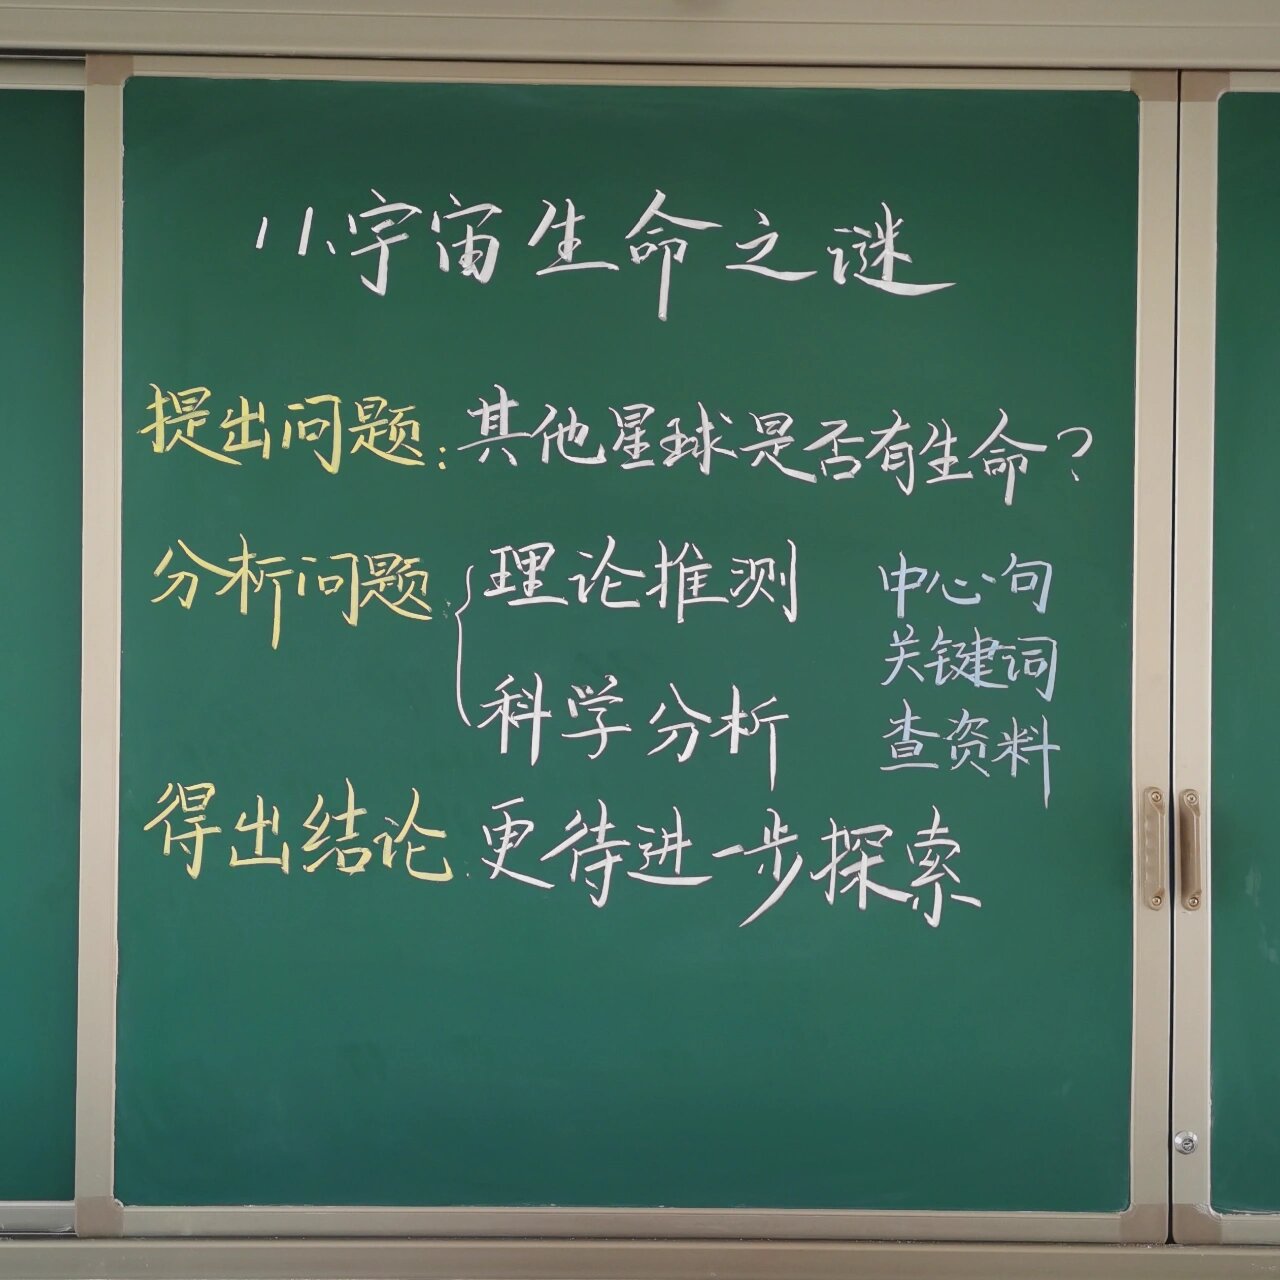 11、宇宙生命之谜
提出问题:其他星球是否有生命?
分析问题
理论推测
科学分析
中心句
关键词
查资料
得出结论:更待进一步探索